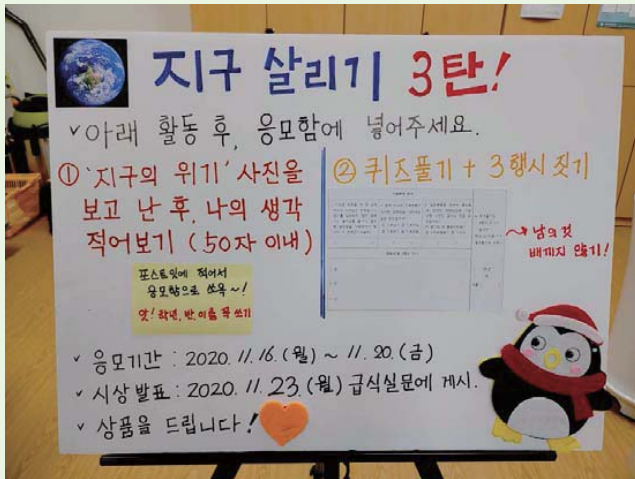 지구 살리기 3탄!
✓아래 활동 후, 응모함에 넣어주세요.
① '지구의 위기' 사진을
보고 난 후, 나의 생각
적어보기 (50자 이내)
포스트잇에 적어서
응모함으로 쏘옥~!
앗! 학년, 반, 이름 꼭 쓰기
② 퀴즈풀기 + 3행시 짓기
→ 남의 것
베끼지 않기!
✓ 응모기간 : 2020. 11. 16. (월) ~ 11. 20. (금)
✓ 시상 발표 : 2020. 11. 23. (월) 급식실문에 게시.
✓ 상품을 드립니다!